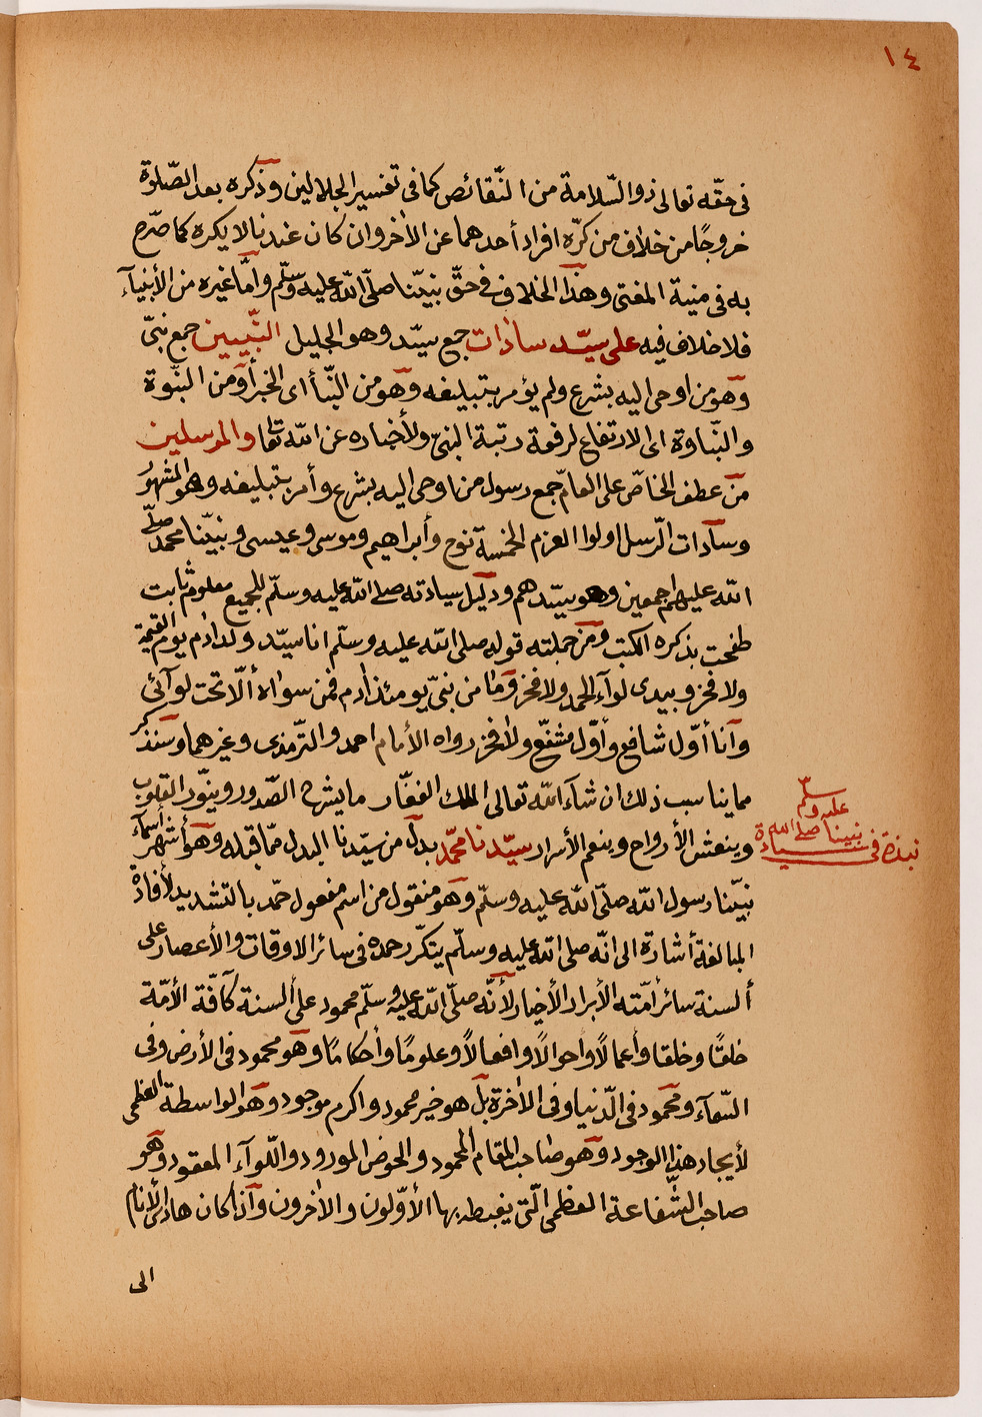 ١٤
فى حقّه تعالى ذو السّلامة من النّقائص كما فى تفسير الجلالين وذكره بعد الصّلوة
خروجًا من خلاف من كرّه افراد أحدهما عن الاخر وان كان عندنا لا يكره كما صرّح
به فى منية المفتى وهذا الخلاف فى حقّ نبيّنا صلّى الله عليه وسلّم وامّا غيره من الأنبيآء
فلا خلاف فيه على سيّد سادات جمع سيّد وهو الجليل النّبيين جمع نبىّ
وهو من اوحى اليه بشرع ولم يؤمر بتبليغه وهو من النّبأ اى الخبر أومن النّبوة
والنّباوة اى الارتفاع لرفعة رتبة النبىّ ولأخباره عن الله تعا والمرسلين
من عطف الخاصّ على العامّ جمع رسول من اوحى اليه بشرع وأمر بتبليغه وهو المشهور
وسآدات الرّسل اولوا العزم الخمسة نوح وأبراهيم وموسى وعيسى ونبيّنا محمد صلّى
الله عليهم اجمعين وهو سيّدهم ودليل سيادته صلى الله عليه وسلّم للجميع معلوم ثابت
طفحت بذكره الكتب ومن جملته قوله صلى الله عليه وسلّم انا سيّد ولد ادم يوم القيمة
ولا فخر وبيدى لوآء الحمد ولا فخر وما من نبىّ يومئذ ادم فمن سواه ألّا تحت لوآئى
وآنا أوّل شافع وأوّل مشفّع ولا فخر رواه الأمام احمد والترّمذى وغيرهما وسنذكر
مما يناسب ذلك ان شآء الله تعالى الملك الغفّار ما يشرح الصّدور وينوّر القلوب
وينعش الأرواح وينعم الأسرار سيّدنا محمّد بدل من سيّدنا البدل ممّا قبله وهو أشهر أسمآء
نبذة فى سيادة
نبينا صلى الله
عليه وسلّم
نبيّنا رسول الله صلّى الله عليه وسلّم وهو منقول من اسم مفعول حمّد بالتشديد لأفادة
المبالغة أشارة الى انّه صلى الله عليه وسلّم يتكرّر حمده فى سائر الاوقات والأعصار على
ألسنة سائر امّته الأبرار الأخيار لأنّه صلّى الله عليه وسلّم محمود على ألسنة كآفّة الأمّة
خلقًا وخلقا وأعمالًا واحوالًا وافعالًا وعلومًا وأحكامًا وهو محمود فى الأرض وفى
السّمآء ومحمود فى الدّنيا وفى الاخرة بل هو خير محمود واكرم موجود وهو الواسطة العظمى
لأيجاد هذا الوجود وهو صاحب المقام المحمود والحوض المورود واللّوآء المعقود وهو
صاحب الشّفاعة العظمى الّتى يغبطه بها الأوّلون والاخرون وآذا كان هادى الأنام
الى